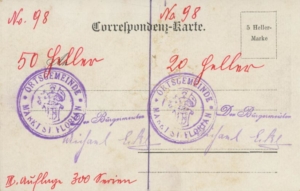 No. 98 No. 98
Correspondenz-Karte.
5 Heller-
Marke
50 Heller 20 Heller
ORTSGEMEINDE
MARKT ST. FLORIAN
ORTSGEMEINDE
MARKT ST. FLORIAN
Der Bürgermeister Der Bürgermeister
Michael Michael
II. Auflage 300 Serien